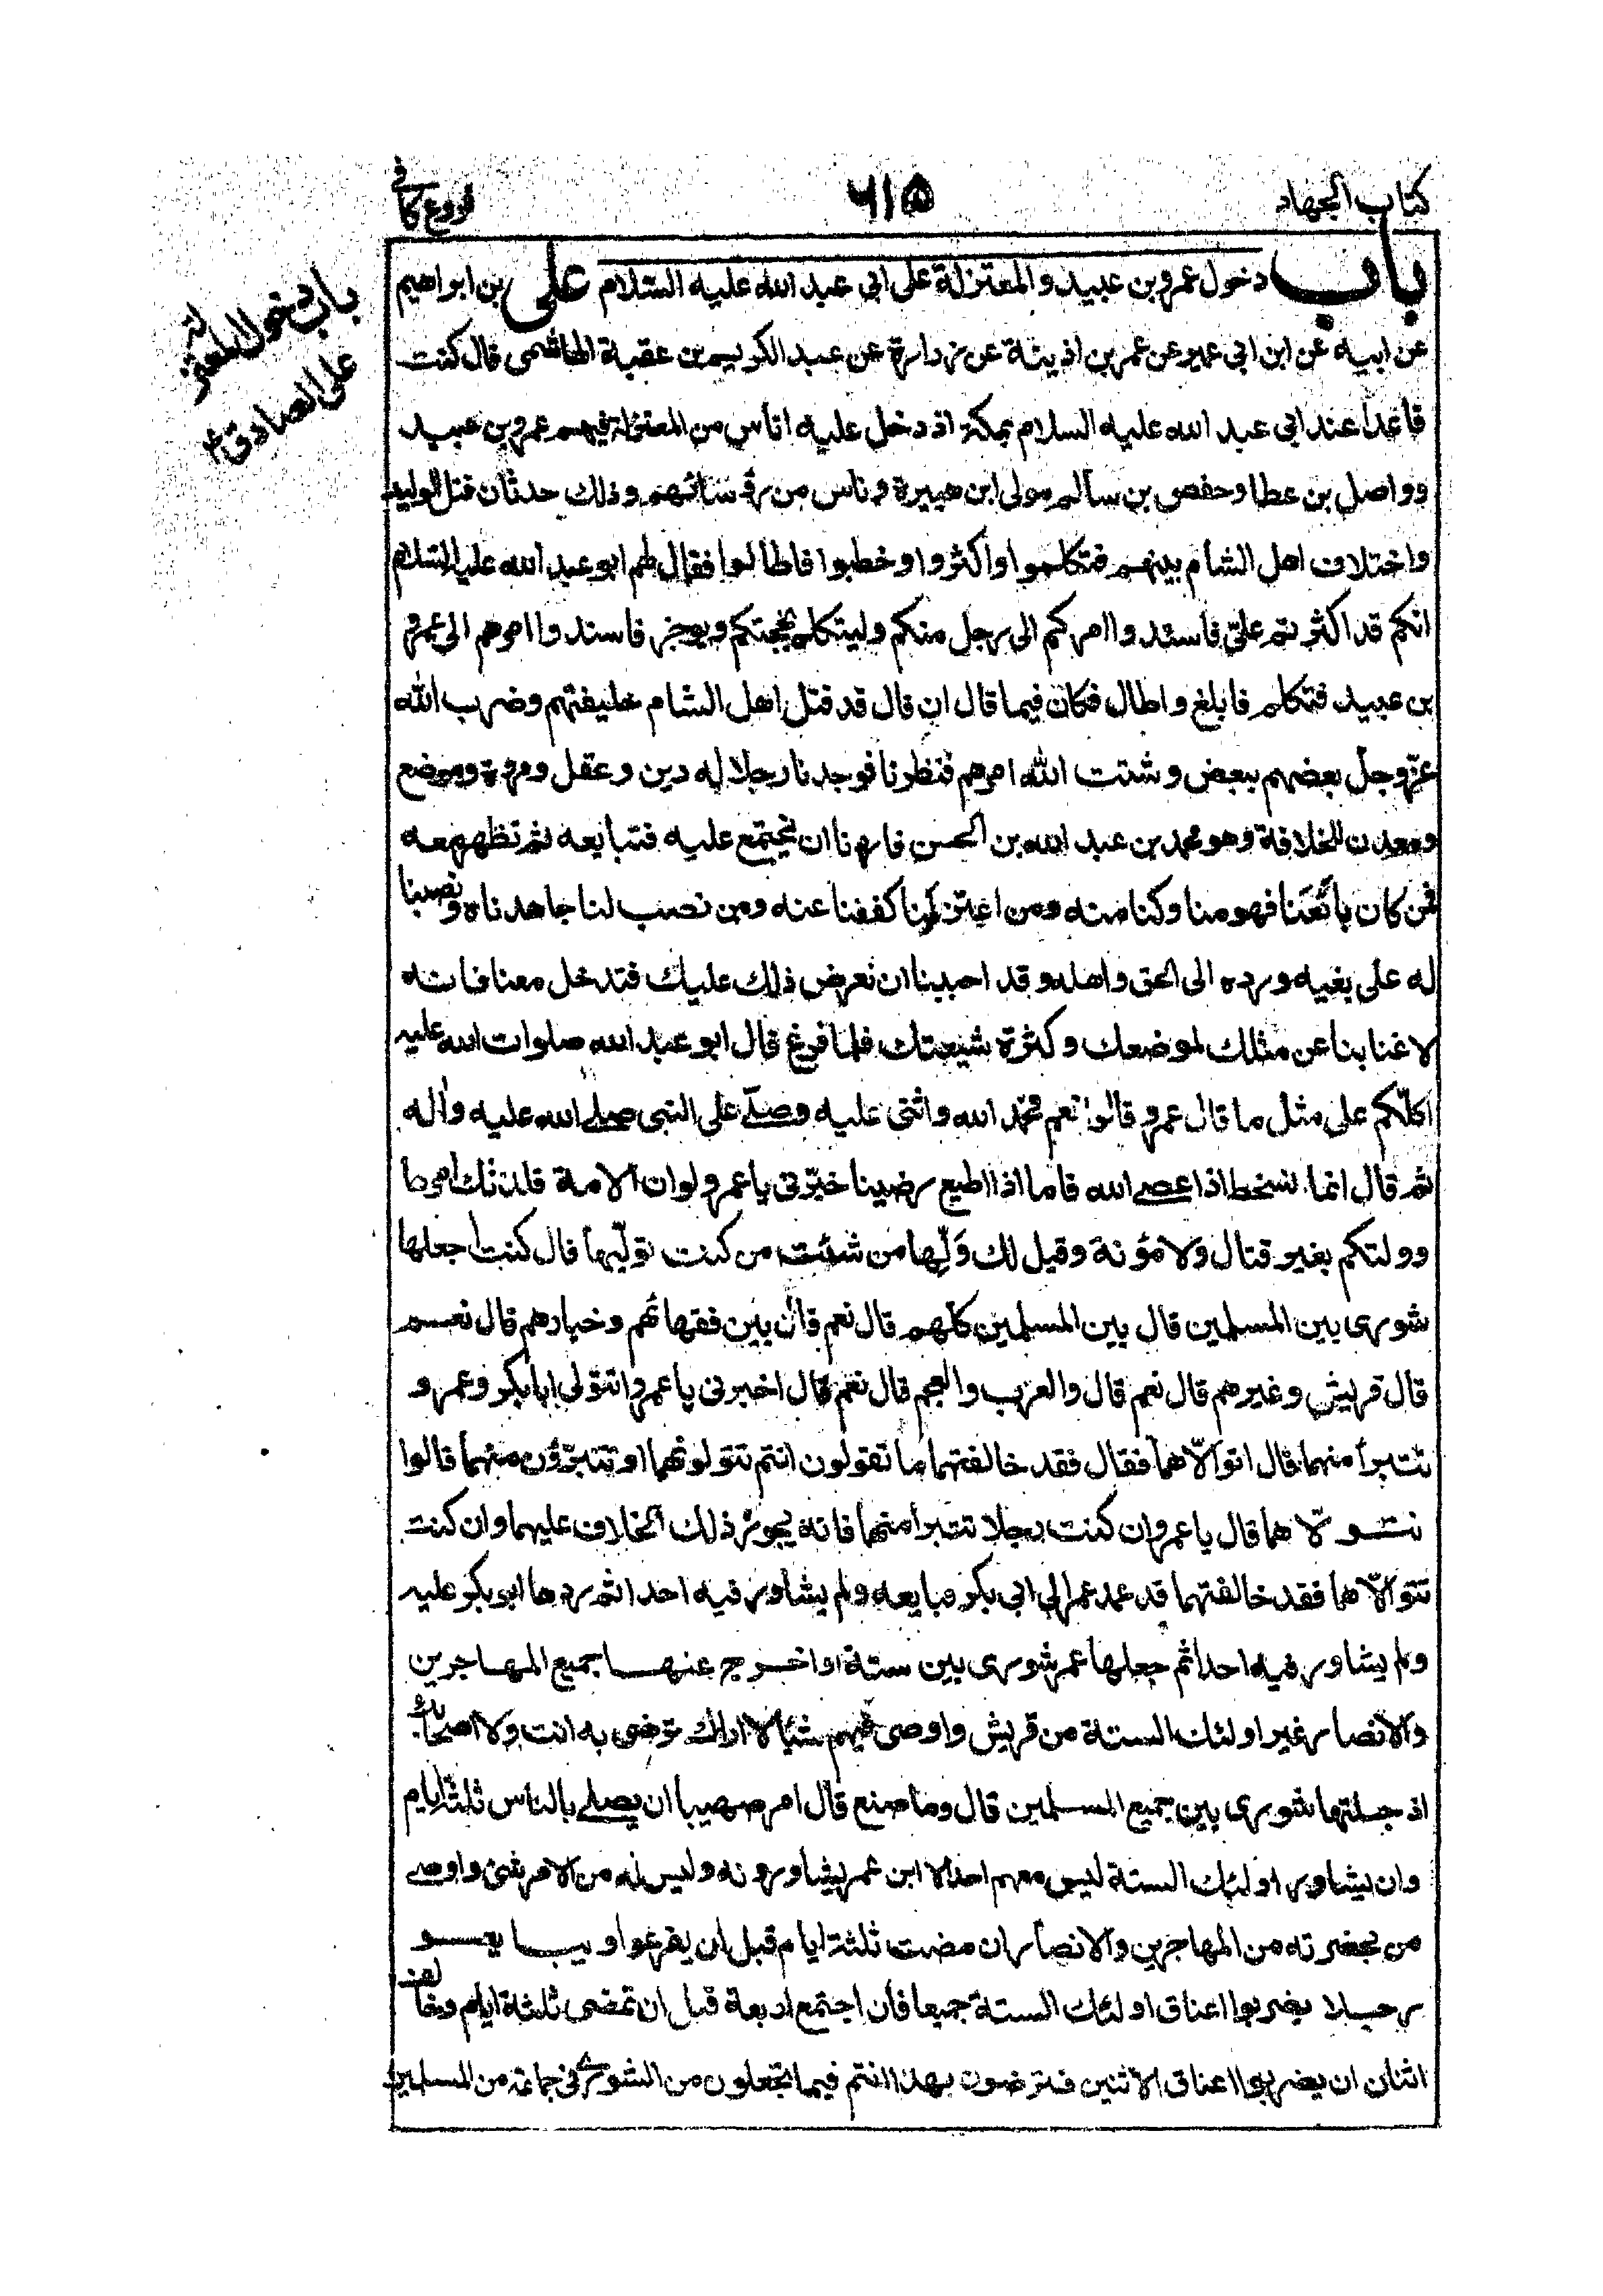 كتاب الجهاد
٦١٥
فروع كافى
باب دخول المعتزلة
على الصادق ع
باب دخول عمرو بن عبيد والمعتزلة على ابى عبد الله عليه السّلام على بن ابراهيم
عن ابيه عن ابن ابى عمير عن عمر بن اذينة عن زرارة عن عبد الكريم بن عقبة الهاشمى قال كنت
قاعدا عند ابى عبد الله عليه السلام بمكة اذ دخل عليه اناس من المعتزلة فيهم عمرو بن عبيد
وواصل بن عطا وحفص بن سالم مولى ابن هبيرة وناس من رؤسائهم وذلك حدثان قتل الوليد
واختلاف اهل الشام بينهم فتكلموا واكثروا وخطبوا فاطالوا فقال لهم ابو عبد الله عليه السّلام
انكم قد اكثرتم علىّ فاسندوا امركم الى رجل منكم وليتكلم بحجتكم ويوجز فاسندوا امرهم الى عمرو
بن عبيد فتكلم فابلغ واطال فكان فيما قال ان قال قد قتل اهل الشام خليفتهم وضرب الله
عزّوجلّ بعضهم ببعض وشتت الله امرهم فنظرنا فوجدنا رجلا له دين وعقل ومروة وموضع
ومعدن للخلافة وهو محمد بن عبد الله بن الحسن فاردنا ان نجتمع عليه فنبايعه ثم نظهر معه
فمن كان بائعنا فهو منا وكنا منه ومن اعتزلنا كففنا عنه ومن نصب لنا جاهدناه ونصبنا
له على بغيه ورده الى الحق واهله وقد احببنا ان نعرض ذلك عليك فتدخل معنا فانه
لا غنا بنا عن مثلك لموضعك وكثرة شيعتك فلما فرغ قال ابو عبد الله صلوات الله عليه
اكلّكم على مثل ما قال عمرو قالوا نعم فحمد الله واثنى عليه وصلّى على النبى صلى الله عليه واله
ثم قال انما نسخط اذا عصى الله فاما اذا اطيع رضينا خبّرنى يا عمرو لو ان الامة قلدتك امرها
وولتكم بغير قتال ولا مؤنة وقيل لك وَلِّها من شئت من كنت تولّيها قال كنت اجعلها
شورى بين المسلمين قال بين المسلمين كلّهم قال نعم قال بين فقهائهم وخيارهم قال نعم
قال قريش وغيرهم قال نعم قال والعرب والعجم قال نعم قال اخبرنى يا عمرو اتتولى ابا بكر وعمر و
تتبرأ منهما قال اتوالّاهما فقال فقد خالفتهما ما تقولون انتم تتولونهما او تتبرّؤن منهما قالوا
نتولّاهما قال يا عمرو ان كنت رجلا تتبرأ منهما فانه يجوز ذلك الخلاف عليهما وان كنت
تتوالّاهما فقد خالفتهما قد عمد عمر الى ابى بكر فبايعه ولم يشاور فيه احدا ثم ردها ابو بكر عليه
ولم يشاور فيه احدا ثم جعلها عمر شورى بين ستة واخرج عنها جميع المهاجرين
والانصار غير اولئك الستة من قريش واوصى فيهم شيئا لا اراك ترضى به انت ولا اصحابك
اذ جعلتها شورى بين جميع المسلمين قال وما صنع قال امر صهيبا ان يصلى بالناس ثلثة ايام
وان يشاور اولئك الستة ليس معهم احد الا ابن عمر يشاورونه وليس له من الامر شئ واوصى
من بحضرته من المهاجرين والانصار ان مضت ثلثة ايام قبل ان يفرغوا او يبايعوا
رجلا يضربوا اعناق اولئك الستة جميعا فان اجتمع اربعة قبل ان تمضى ثلثة ايام وخالف
اثنان ان يضربوا اعناق الاثنين فترضون بهذا انتم فيما تجعلون من الشورى فى جماعة من المسلمين